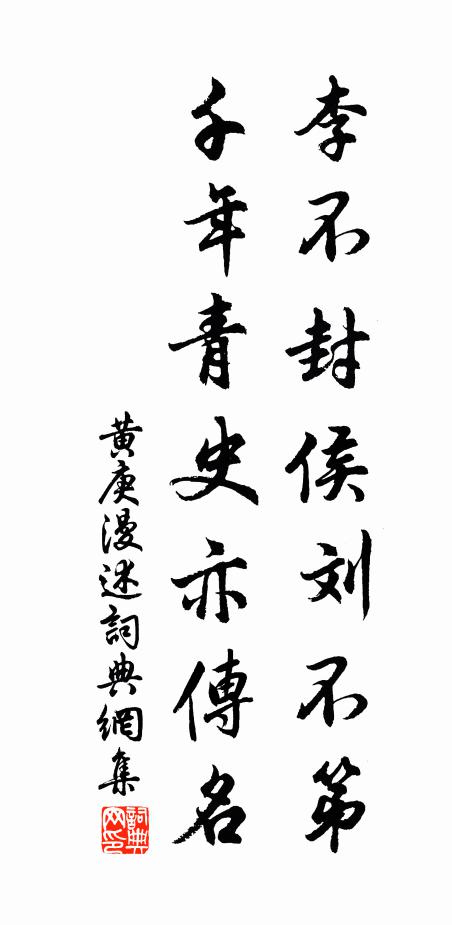 李不封侯刘不第
千年青史亦傳名
黄庚漫述詞典網集
詞典
网印